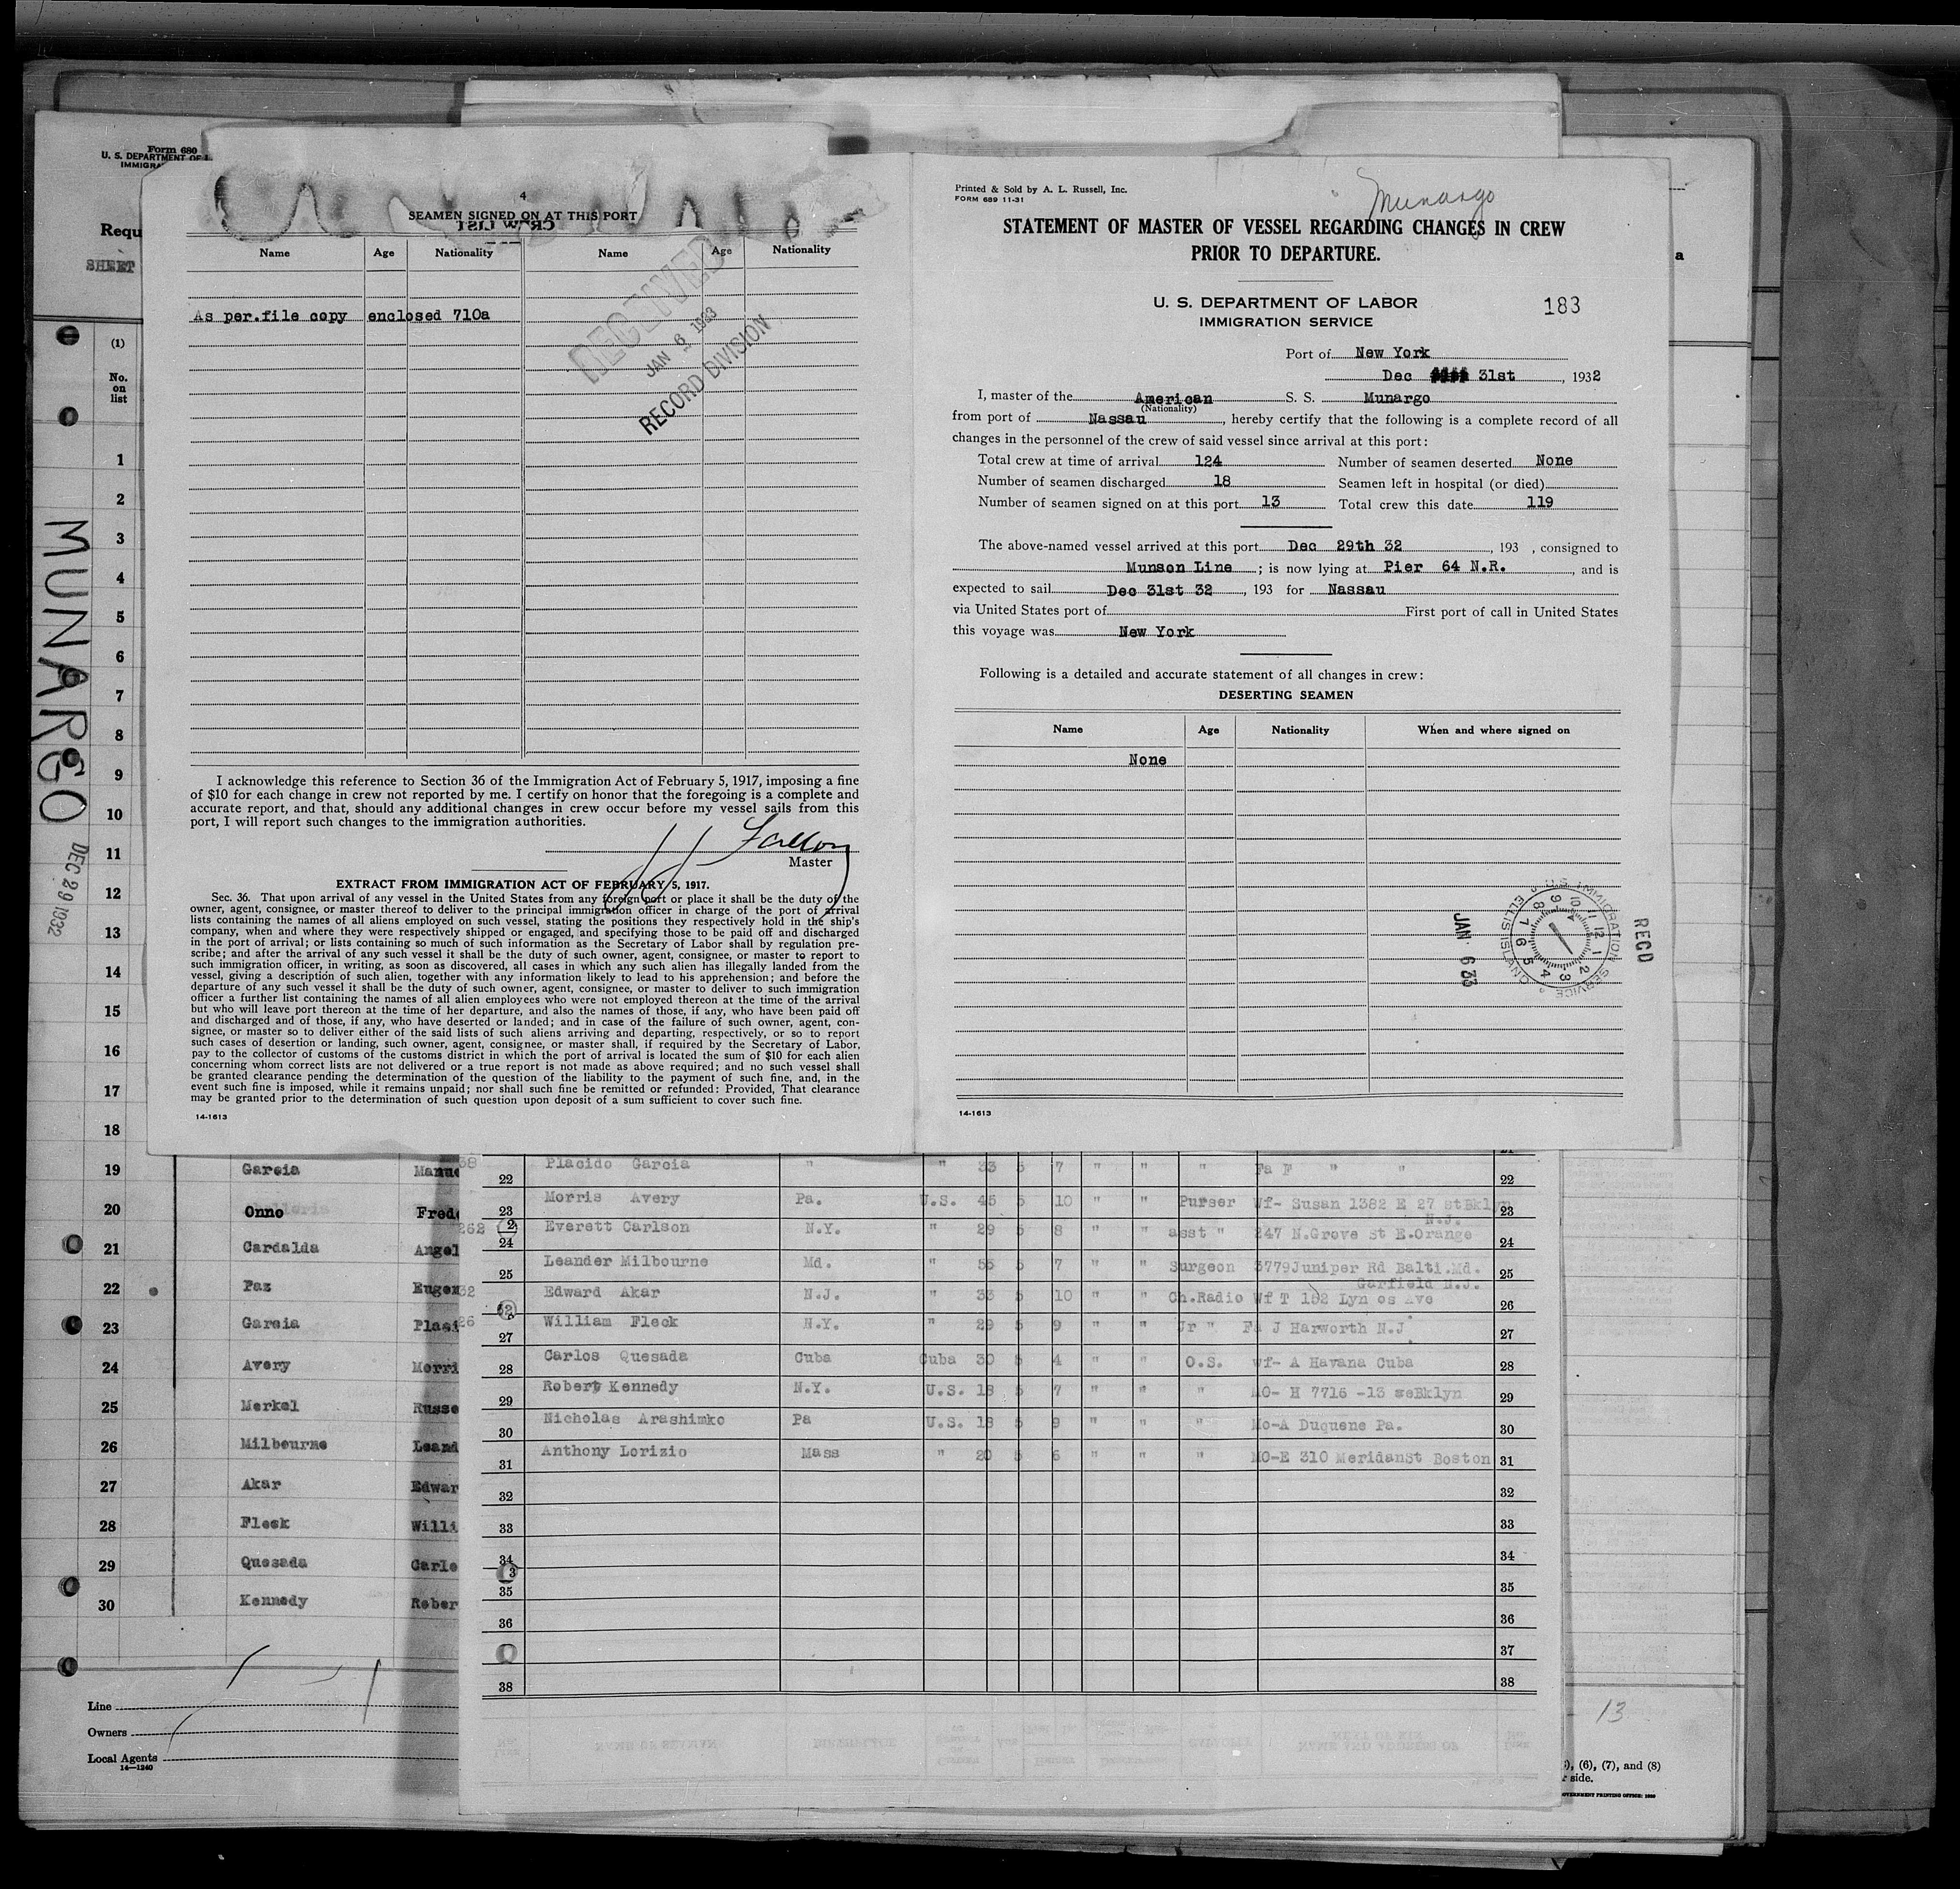 Form 680
U. S. DEPARTMENT OF
IMMIGRA
Requ
SHEET
(1)
No.
on
list
MUNARGO
DEC 29 1932
1
2
3
4
5
6
7
8
9
10
11
12
13
14
15
16
17
18
19 Garcia Manu
20 Onno Fred
21 Cardalda Angel
22 Paz Eugen
23 Garcia Plasi
24 Avery Morri
25 Merkel Russe
26 Milbourne Leand
27 Akar Edwar
28 Fleck Willi
29 Quesada Carlo
30 Kennedy Rober
Line
Owners
Local Agents
14—1240
4
SEAMEN SIGNED ON AT THIS PORT
CREW LIST
Name Age Nationality Name Age Nationality
As per.file copy enclosed 710a
RECEIVED
JAN 6 1933
RECORD DIVISION
I acknowledge this reference to Section 36 of the Immigration Act of February 5, 1917, imposing a fine
of $10 for each change in crew not reported by me. I certify on honor that the foregoing is a complete and
accurate report, and that, should any additional changes in crew occur before my vessel sails from this
port, I will report such changes to the immigration authorities.
Master
EXTRACT FROM IMMIGRATION ACT OF FEBRUARY 5, 1917.
Sec. 36. That upon arrival of any vessel in the United States from any foreign port or place it shall be the duty of the
owner, agent, consignee, or master thereof to deliver to the principal immigration officer in charge of the port of arrival
lists containing the names of all aliens employed on such vessel, stating the positions they respectively hold in the ship's
company, when and where they were respectively shipped or engaged, and specifying those to be paid off and discharged
in the port of arrival; or lists containing so much of such information as the Secretary of Labor shall by regulation pre-
scribe; and after the arrival of any such vessel it shall be the duty of such owner, agent, consignee, or master to report to
such immigration officer, in writing, as soon as discovered, all cases in which any such alien has illegally landed from the
vessel, giving a description of such alien, together with any information likely to lead to his apprehension; and before the
departure of any such vessel it shall be the duty of such owner, agent, consignee, or master to deliver to such immigration
officer a further list containing the names of all alien employees who were not employed thereon at the time of the arrival
but who will leave port thereon at the time of her departure, and also the names of those, if any, who have been paid off
and discharged and of those, if any, who have deserted or landed; and in case of the failure of such owner, agent, con-
signee, or master so to deliver either of the said lists of such aliens arriving and departing, respectively, or so to report
such cases of desertion or landing, such owner, agent, consignee, or master shall, if required by the Secretary of Labor,
pay to the collector of customs of the customs district in which the port of arrival is located the sum of $10 for each alien
concerning whom correct lists are not delivered or a true report is not made as above required; and no such vessel shall
be granted clearance pending the determination of the question of the liability to the payment of such fine, and, in the
event such fine is imposed, while it remains unpaid; nor shall such fine be remitted or refunded: Provided, That clearance
may be granted prior to the determination of such question upon deposit of a sum sufficient to cover such fine.
14-1613
Printed & Sold by A. L. Russell, Inc.
FORM 689 11-31
Munargo
STATEMENT OF MASTER OF VESSEL REGARDING CHANGES IN CREW
PRIOR TO DEPARTURE.
U. S. DEPARTMENT OF LABOR
IMMIGRATION SERVICE
183
Port of New York
Dec 31st , 1932
I, master of the American S. S. Munargo
(Nationality)
from port of Nassau , hereby certify that the following is a complete record of all
changes in the personnel of the crew of said vessel since arrival at this port:
Total crew at time of arrival 124 Number of seamen deserted None
Number of seamen discharged 18 Seamen left in hospital (or died)
Number of seamen signed on at this port 13 Total crew this date 119
The above-named vessel arrived at this port Dec 29th 32 , 193 , consigned to
Munson Line ; is now lying at Pier 64 N.R. , and is
expected to sail Dec 31st 32 , 193 for Nassau
via United States port of First port of call in United States
this voyage was New York
Following is a detailed and accurate statement of all changes in crew:
DESERTING SEAMEN
Name Age Nationality When and where signed on
None
RECD
JAN 6 33
U.S. IMMIGRATION SERVICE
ELLIS ISLAND
14-1613
22 Placido Garcia " " 33 5 7 " " " Fa F " " 22
23 Morris Avery Pa. U.S. 45 5 10 " " Purser Wf- Susan 1382 E 27 stBkl 23
N.J.
24 Everett Carlson N.Y. " 29 5 8 " " asst " 247 N.Grove St E.Orange 24
25 Leander Milbourne Md. " 55 5 7 " " Surgeon 3779Juniper Rd Balti.Md. 25
Garfield N.J.
26 Edward Akar N.J. " 33 5 10 " " Ch.Radio Wf T 192 Lyn os Ave 26
27 William Fleck N.Y. " 29 5 9 " " Jr " Fa J Harworth N.J. 27
28 Carlos Quesada Cuba Cuba 30 5 4 " " O.S. wf- A Havana Cuba 28
29 Robert Kennedy N.Y. U.S. 18 5 7 " " " MO- H 7716 -13 aeBklyn 29
30 Nicholas Arashimko Pa U.S. 18 5 9 " " " Mo-A Duquene Pa. 30
31 Anthony Lorizio Mass " 20 5 6 " " " MO-E 310 MeridanSt Boston 31
32 32
33 33
34 34
35 35
36 36
37
38 38
a
13
, (6), (7), and (8)
side.
GOVERNMENT PRINTING OFFICE: 1930